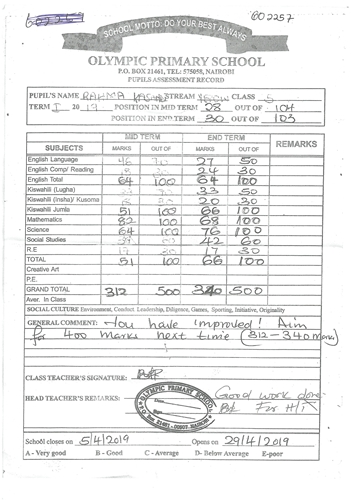 BO2257
SCHOOL MOTTO: DO YOUR BEST ALWAYS
OLYMPIC PRIMARY SCHOOL
P.O. BOX 21461, TEL: 575058, NAIROBI
PUPILS ASSESSMENT RECORD
PUPIL'S NAME RAHMA STREAM CLASS 5
TERM I 2019 POSITION IN MID TERM 28 OUT OF 104
POSITION IN END TERM 30 OUT OF 103
MID TERM END TERM
SUBJECTS MARKS OUT OF MARKS OUT OF REMARKS
English Language 27 50
English Comp/ Reading 24 30
English Total 64 100 64 100
Kiswahili (Lugha) 33 50
Kiswahili (Insha)/ Kusoma 20 30
Kiswahili Jumla 51 100 66 100
Mathematics 82 100 68 100
Science 64 100 76 100
Social Studies 42 60
R.E 17 30
TOTAL 51 100 66 100
Creative Art
P.E.
GRAND TOTAL 312 500 340 500
Aver. In Class
SOCIAL CULTURE Environment, Conduct Leadership, Diligence, Games, Sporting, Initiative, Originality
GENERAL COMMENT: You have improved! Aim
for 400 marks next time (312-340 marks)
CLASS TEACHER'S SIGNATURE:
HEAD TEACHER'S REMARKS: Good work done
For H/T
OLYMPIC PRIMARY SCHOOL
P. O. Box 21461 - 00505, NAIROBI
School closes on 5/4/2019 Opens on 29/4/2019
A - Very good B - Good C - Average D- Below Average E-poor